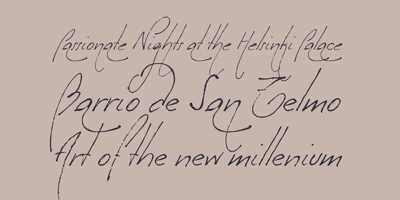 Passionate Nights at the Helsinki Palace
Barrio de San Telmo
Art of the new millenium